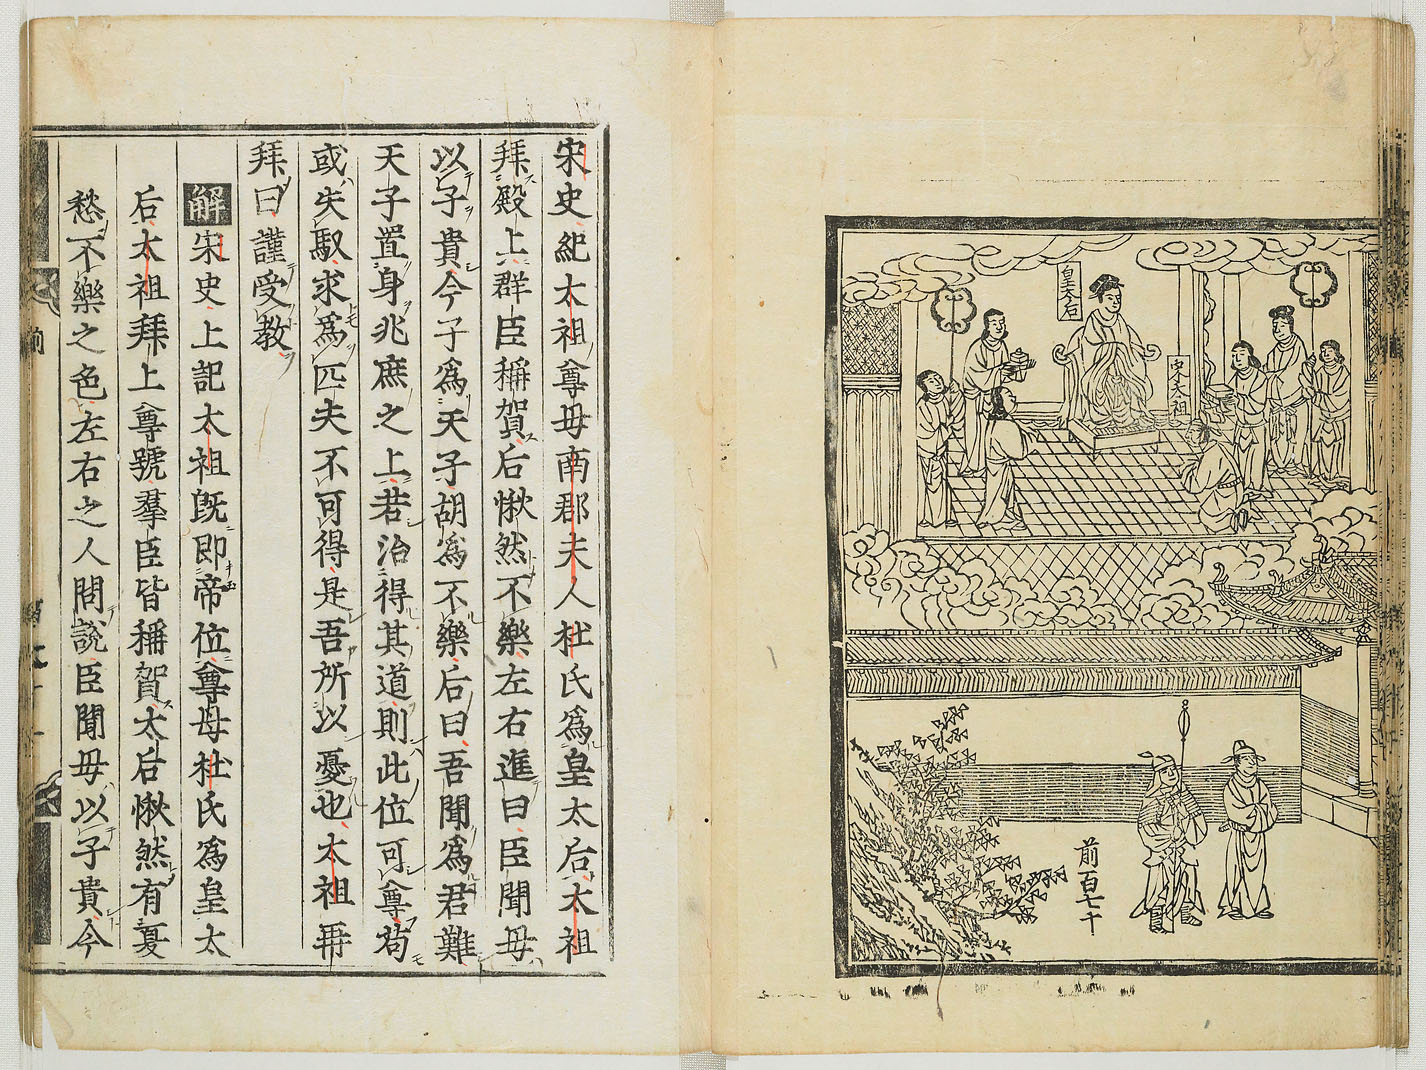 皇太后
宋太祖
前百七十
宋史紀太祖尊母南郡夫人杜氏為皇太后太祖
拜殿上群臣稱賀后愀然不樂左右進曰臣聞母
以子貴今子為天子胡為不樂后曰吾聞為君難
天子置身兆庶之上若治得其道則此位可尊苟
或失馭求為匹夫不可得是吾所以憂也太祖再
拜曰謹受教
解宋史上記太祖旣即帝位尊母杜氏為皇太
后太祖拜上尊號羣臣皆稱賀太后愀然有憂
愁不樂之色左右之人問說臣聞母以子貴今